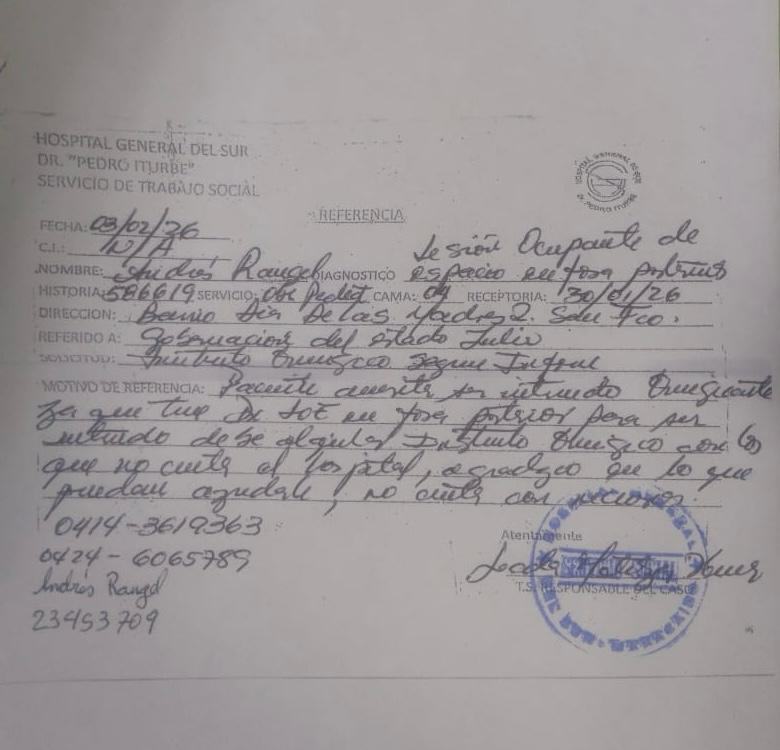 HOSPITAL GENERAL DEL SUR
DR. "PEDRO ITURBE"
SERVICIO DE TRABAJO SOCIAL
REFERENCIA
FECHA: 03/02/26
C.I.: N/A
Lesión Ocupante de
NOMBRE: Andrés Rangel DIAGNOSTICO espacio en fosa posterior
HISTORIA: 586619 SERVICIO: CAMA: 09 RECEPTORIA: 30/01/26
DIRECCION: Barrio Día De las Madres 2. San Fco.
REFERIDO A: Gobernacion del estado Zulia
SOLICITUD: Instituto Quirúgico Segun Informe
MOTIVO DE REFERENCIA: Paciente amerita ser
ya que tiene Dx LOE en fosa posterior para ser
debe Instituto Quirúgico con los
que no cuenta el hospital, agradezco en lo que
puedan ayudarle, no cuenta con recursos.
0414-3619363
0424-6065789
Andrés Rangel
23453709
Atentamente
T.S. RESPONSABLE DEL CASO